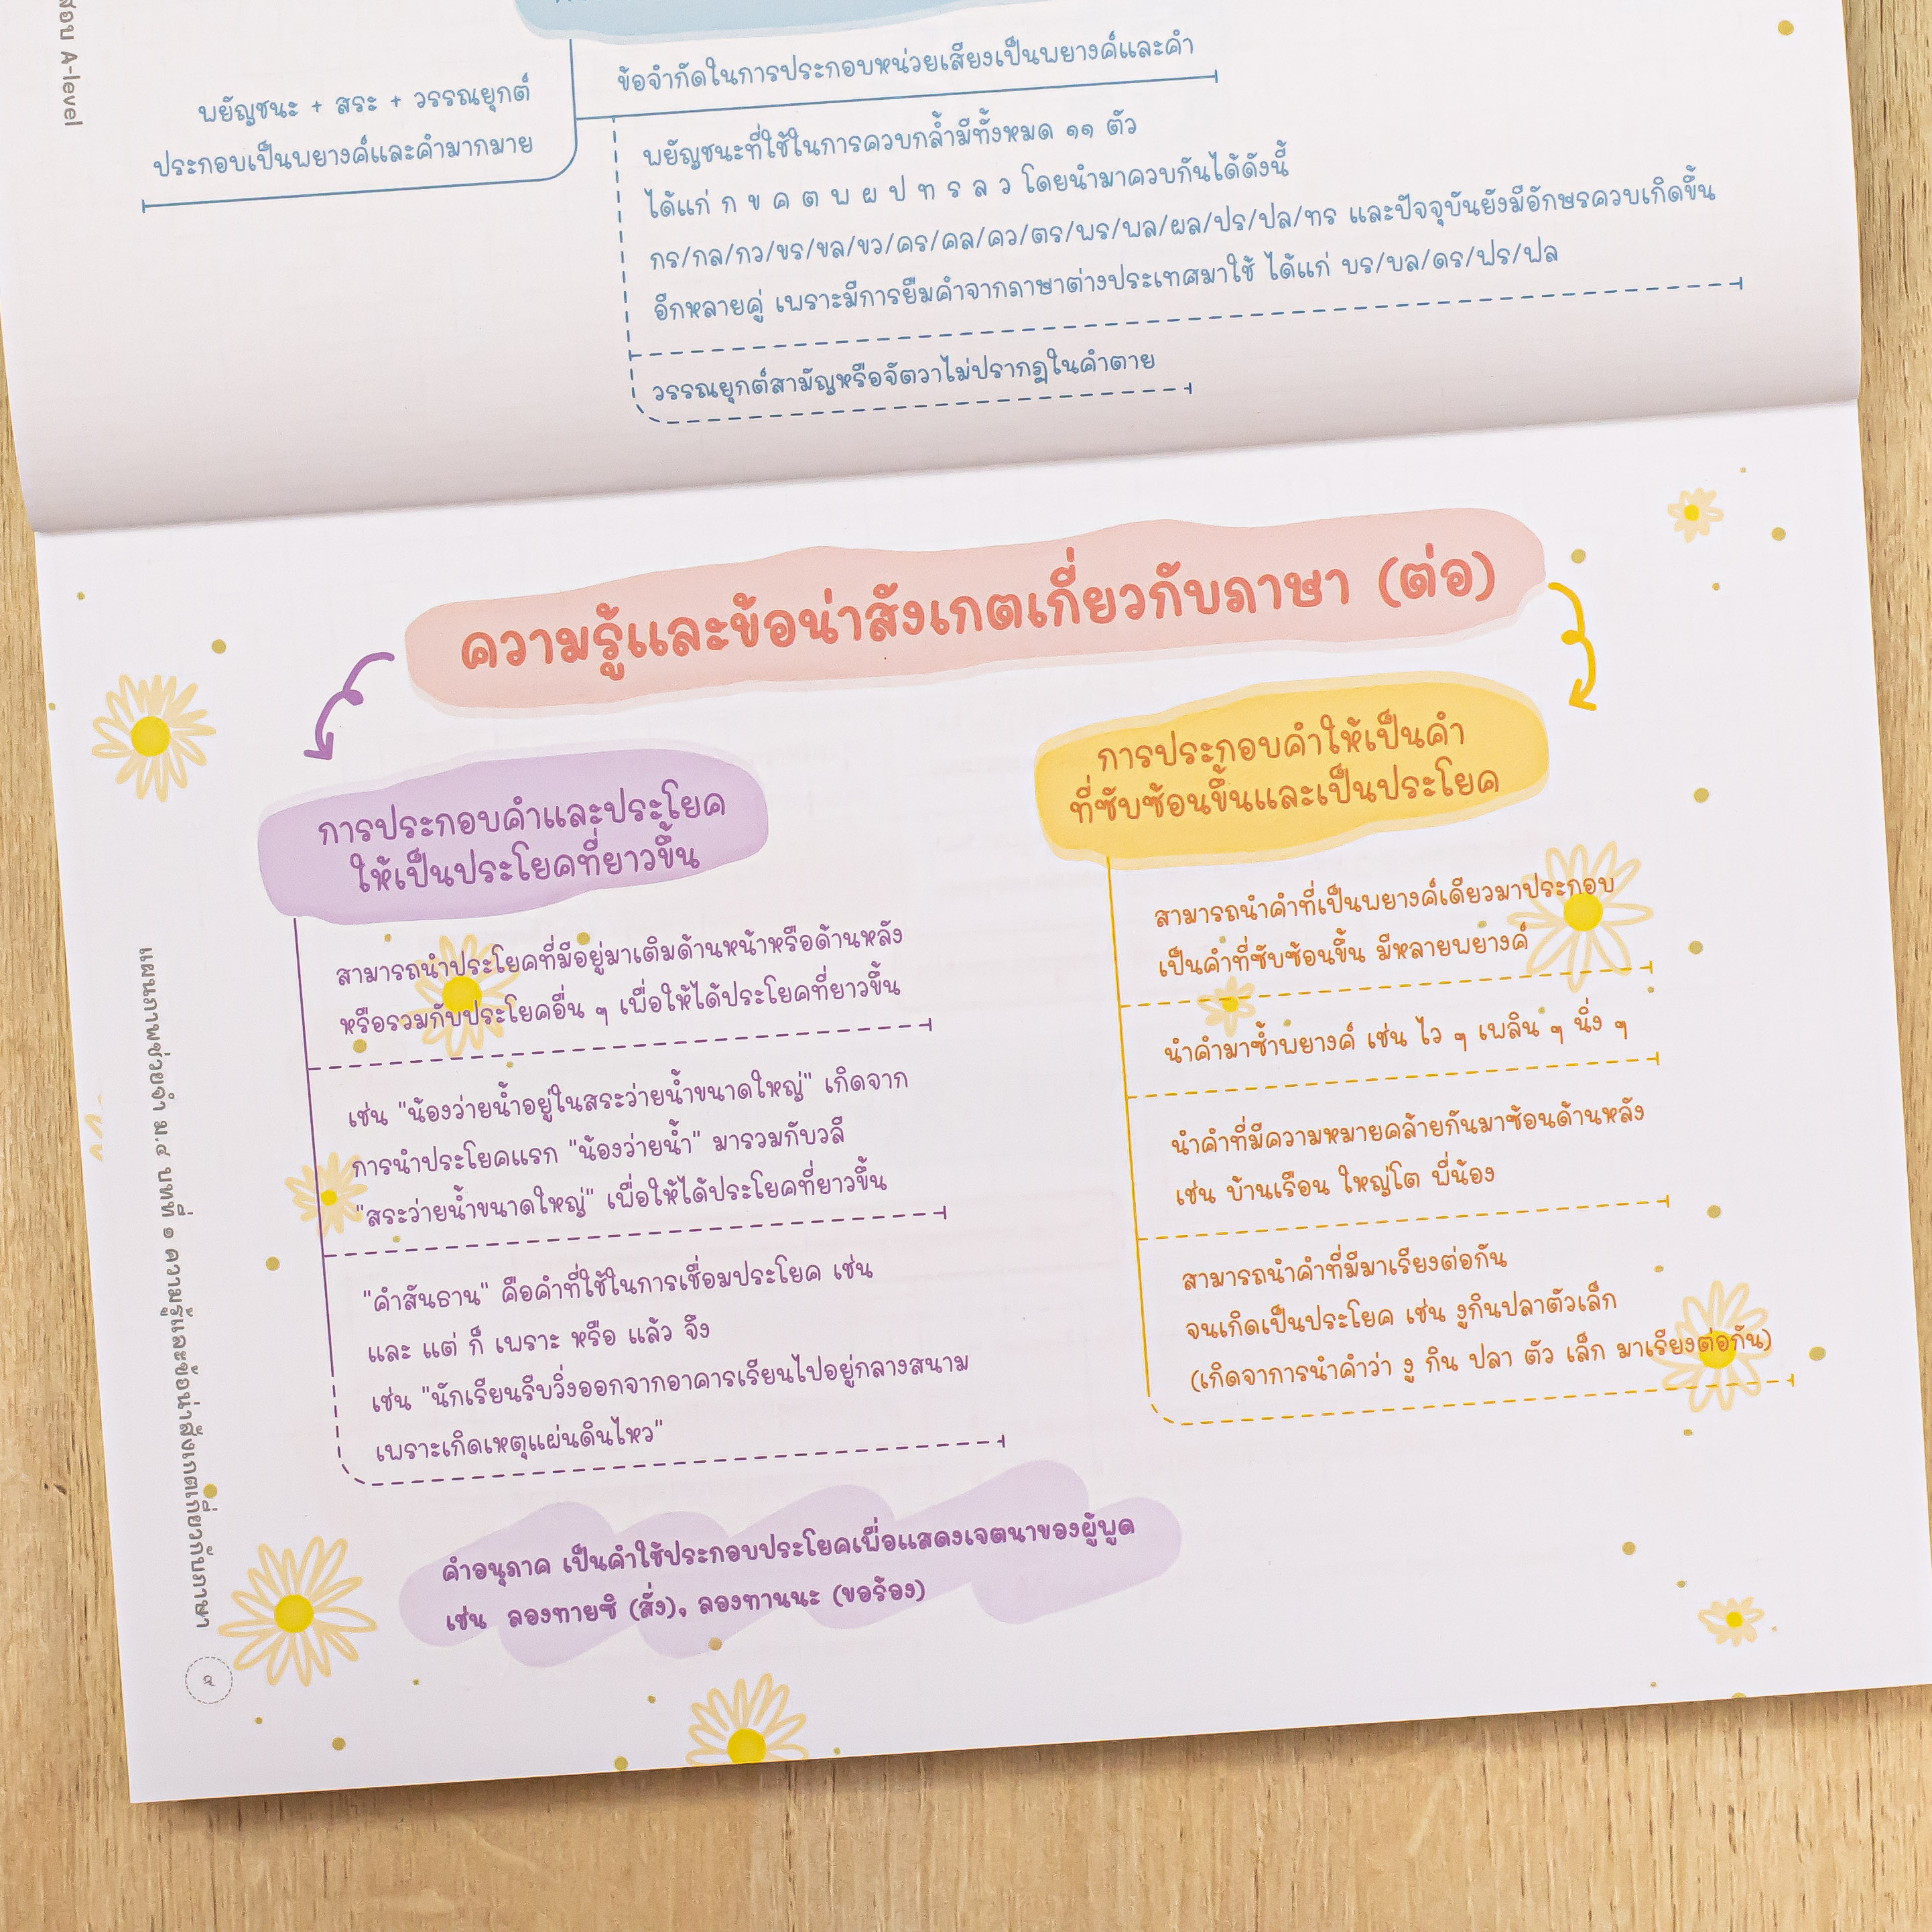 สอบ A-level
พยัญชนะ + สระ + วรรณยุกต์
ประกอบเป็นพยางค์และคำมากมาย
ข้อจำกัดในการประกอบหน่วยเสียงเป็นพยางค์และคำ
พยัญชนะที่ใช้ในการควบกล้ำมีทั้งหมด ๑๑ ตัว
ได้แก่ ก ข ค ต พ ผ ป ท ร ล ว โดยนำมาควบกันได้ดังนี้
กร/กล/กว/ขร/ขล/ขว/คร/คล/คว/ตร/พร/พล/ผล/ปร/ปล/ทร และปัจจุบันยังมีอักษรควบเกิดขึ้น
อีกหลายคู่ เพราะมีการยืมคำจากภาษาต่างประเทศมาใช้ ได้แก่ บร/บล/ดร/ฟร/ฟล
วรรณยุกต์สามัญหรือจัตวาไม่ปรากฏในคำตาย
ความรู้และข้อน่าสังเกตเกี่ยวกับภาษา (ต่อ)
การประกอบคำและประโยค
ให้เป็นประโยคที่ยาวขึ้น
สามารถนำประโยคที่มีอยู่มาเติมด้านหน้าหรือด้านหลัง
หรือรวมกับประโยคอื่น ๆ เพื่อให้ได้ประโยคที่ยาวขึ้น
เช่น "น้องว่ายน้ำอยู่ในสระว่ายน้ำขนาดใหญ่" เกิดจาก
การนำประโยคแรก "น้องว่ายน้ำ" มารวมกับวลี
"สระว่ายน้ำขนาดใหญ่" เพื่อให้ได้ประโยคที่ยาวขึ้น
"คำสันธาน" คือคำที่ใช้ในการเชื่อมประโยค เช่น
และ แต่ ก็ เพราะ หรือ แล้ว จึง
เช่น "นักเรียนรีบวิ่งออกจากอาคารเรียนไปอยู่กลางสนาม
เพราะเกิดเหตุแผ่นดินไหว"
คำอนุภาค เป็นคำใช้ประกอบประโยคเพื่อแสดงเจตนาของผู้พูด
เช่น ลองทายซิ (สั่ง), ลองทานนะ (ขอร้อง)
การประกอบคำให้เป็นคำ
ที่ซับซ้อนขึ้นและเป็นประโยค
สามารถนำคำที่เป็นพยางค์เดียวมาประกอบ
เป็นคำที่ซับซ้อนขึ้น มีหลายพยางค์
นำคำมาซ้ำพยางค์ เช่น ไว ๆ เพลิน ๆ นิ่ง ๆ
นำคำที่มีความหมายคล้ายกันมาซ้อนด้านหลัง
เช่น บ้านเรือน ใหญ่โต พี่น้อง
สามารถนำคำที่มีมาเรียงต่อกัน
จนเกิดเป็นประโยค เช่น งูกินปลาตัวเล็ก
(เกิดจาการนำคำว่า งู กิน ปลา ตัว เล็ก มาเรียงต่อกัน)
แผนภาพช่วยจำ ม.๕ บทที่ ๑ ความรู้และข้อน่าสังเกตเกี่ยวกับภาษา